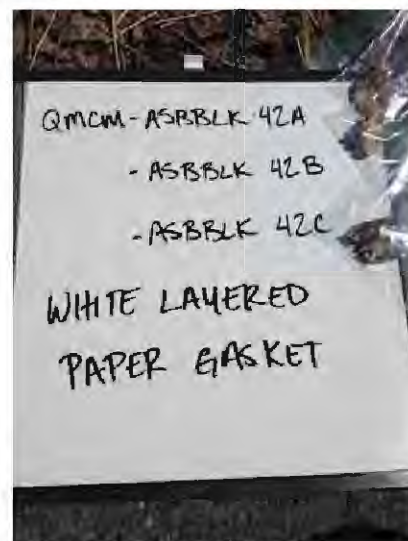 QMCM-ASBBLK 42A
- ASBBLK 42B
- ASBBLK 42C
WHITE LAYERED
PAPER GASKET